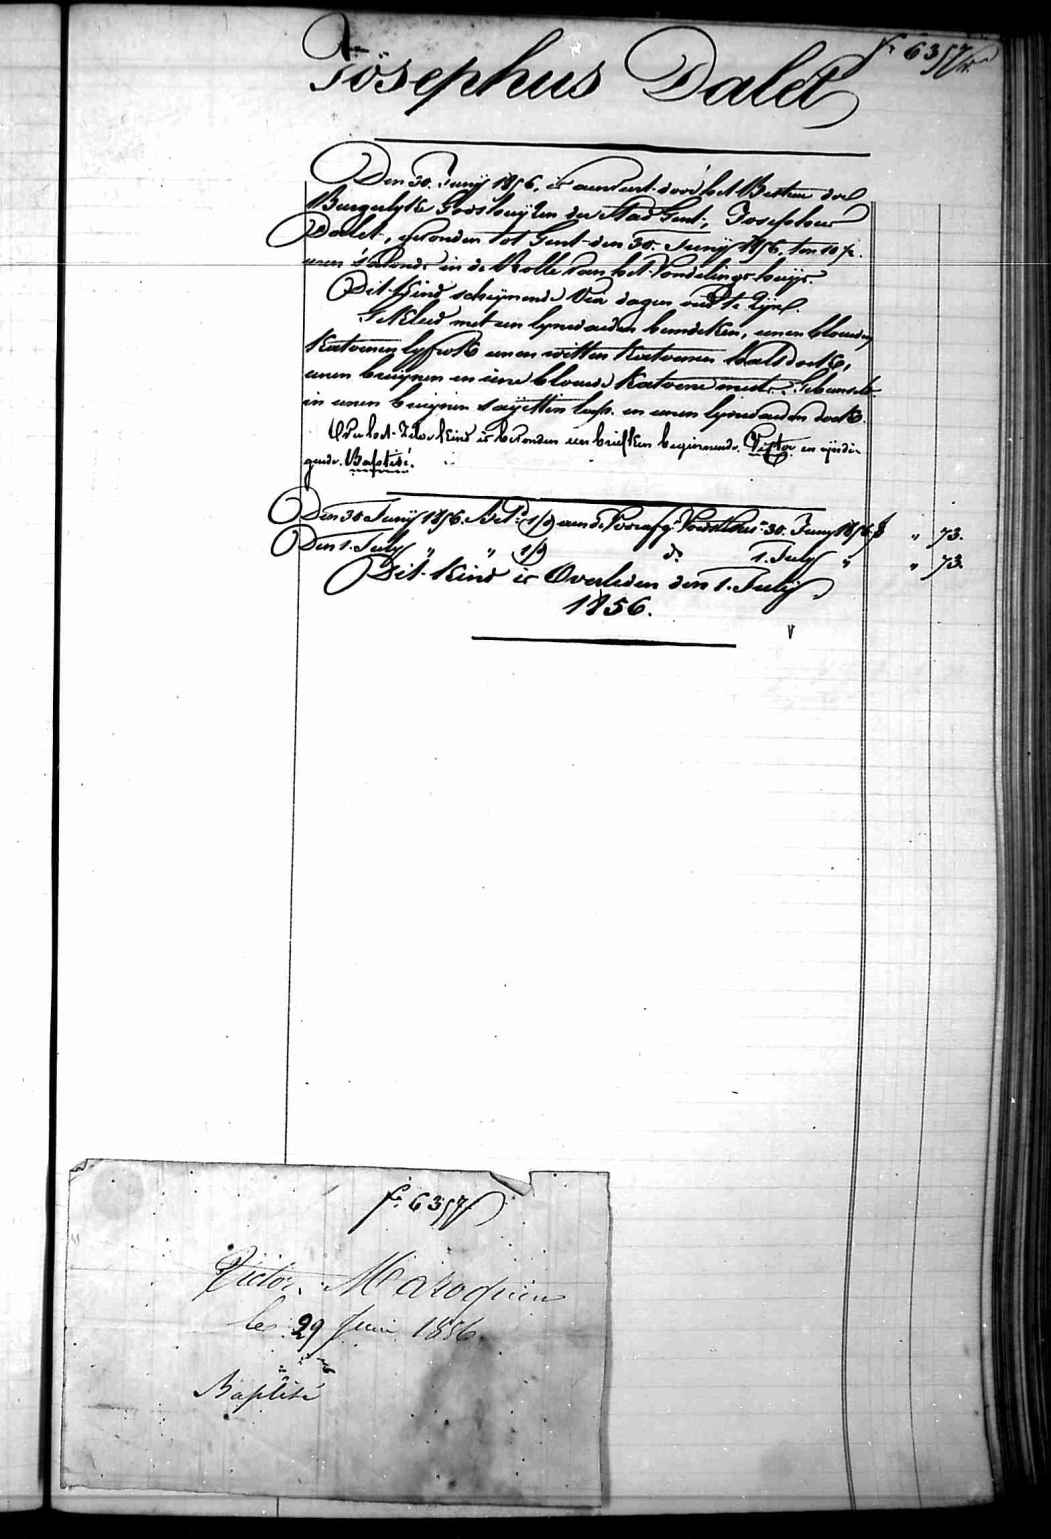 fo. 6357
Josephus Dalet
Den 30. Junij 1856, is aenveird door het Bestuer der
Burgerlyke Godshuijzen der Stad Gent, Josephus
Dalet, gevonden tot Gent den 30. Junij 1856, ten 10 ½
uren s'avonds in de Rolle van het Vondelingshuijs.
Dit Kind schijnende vier dagen oud te zijn.
Gekleed met een lynwaeden hemdeken, eenen blauwen
Katoenen lyfrok eenen witten Katoenen halsdoek,
eenen bruijnen en eene blauwe Katoene muts. Gebusseld
in eenen bruijnen saijetten lap. en eenen lynwaeden doek.
Op het zelve Kind is bevonden een briefken beginnende. Victor en eijndi-
gende. Baptisé.
Den 30 Junij 1856. Bet. 1/9 aen de Voorafg. 30. Junij 1856. f " 73.
Den 1. July " " 1/9 do 1. July " " 73.
Dit Kind is Overleden den 1. Julij
1856.
fo. 6357
Victor. Maroquin
le 29 Juin 1856.
Baptisé